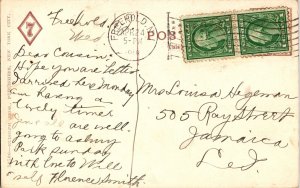 Freehold
Wed
Dear Cousin.
Hope you are better
I arrived here Monday
am having a
lovely time
are well.
going to Asbury
Park Sunday
with love to Will
& self Florence Smith
7
FREEHOLD
POST
Mrs Louisa Hegeman
505 Ray Street
Jamaica
L I